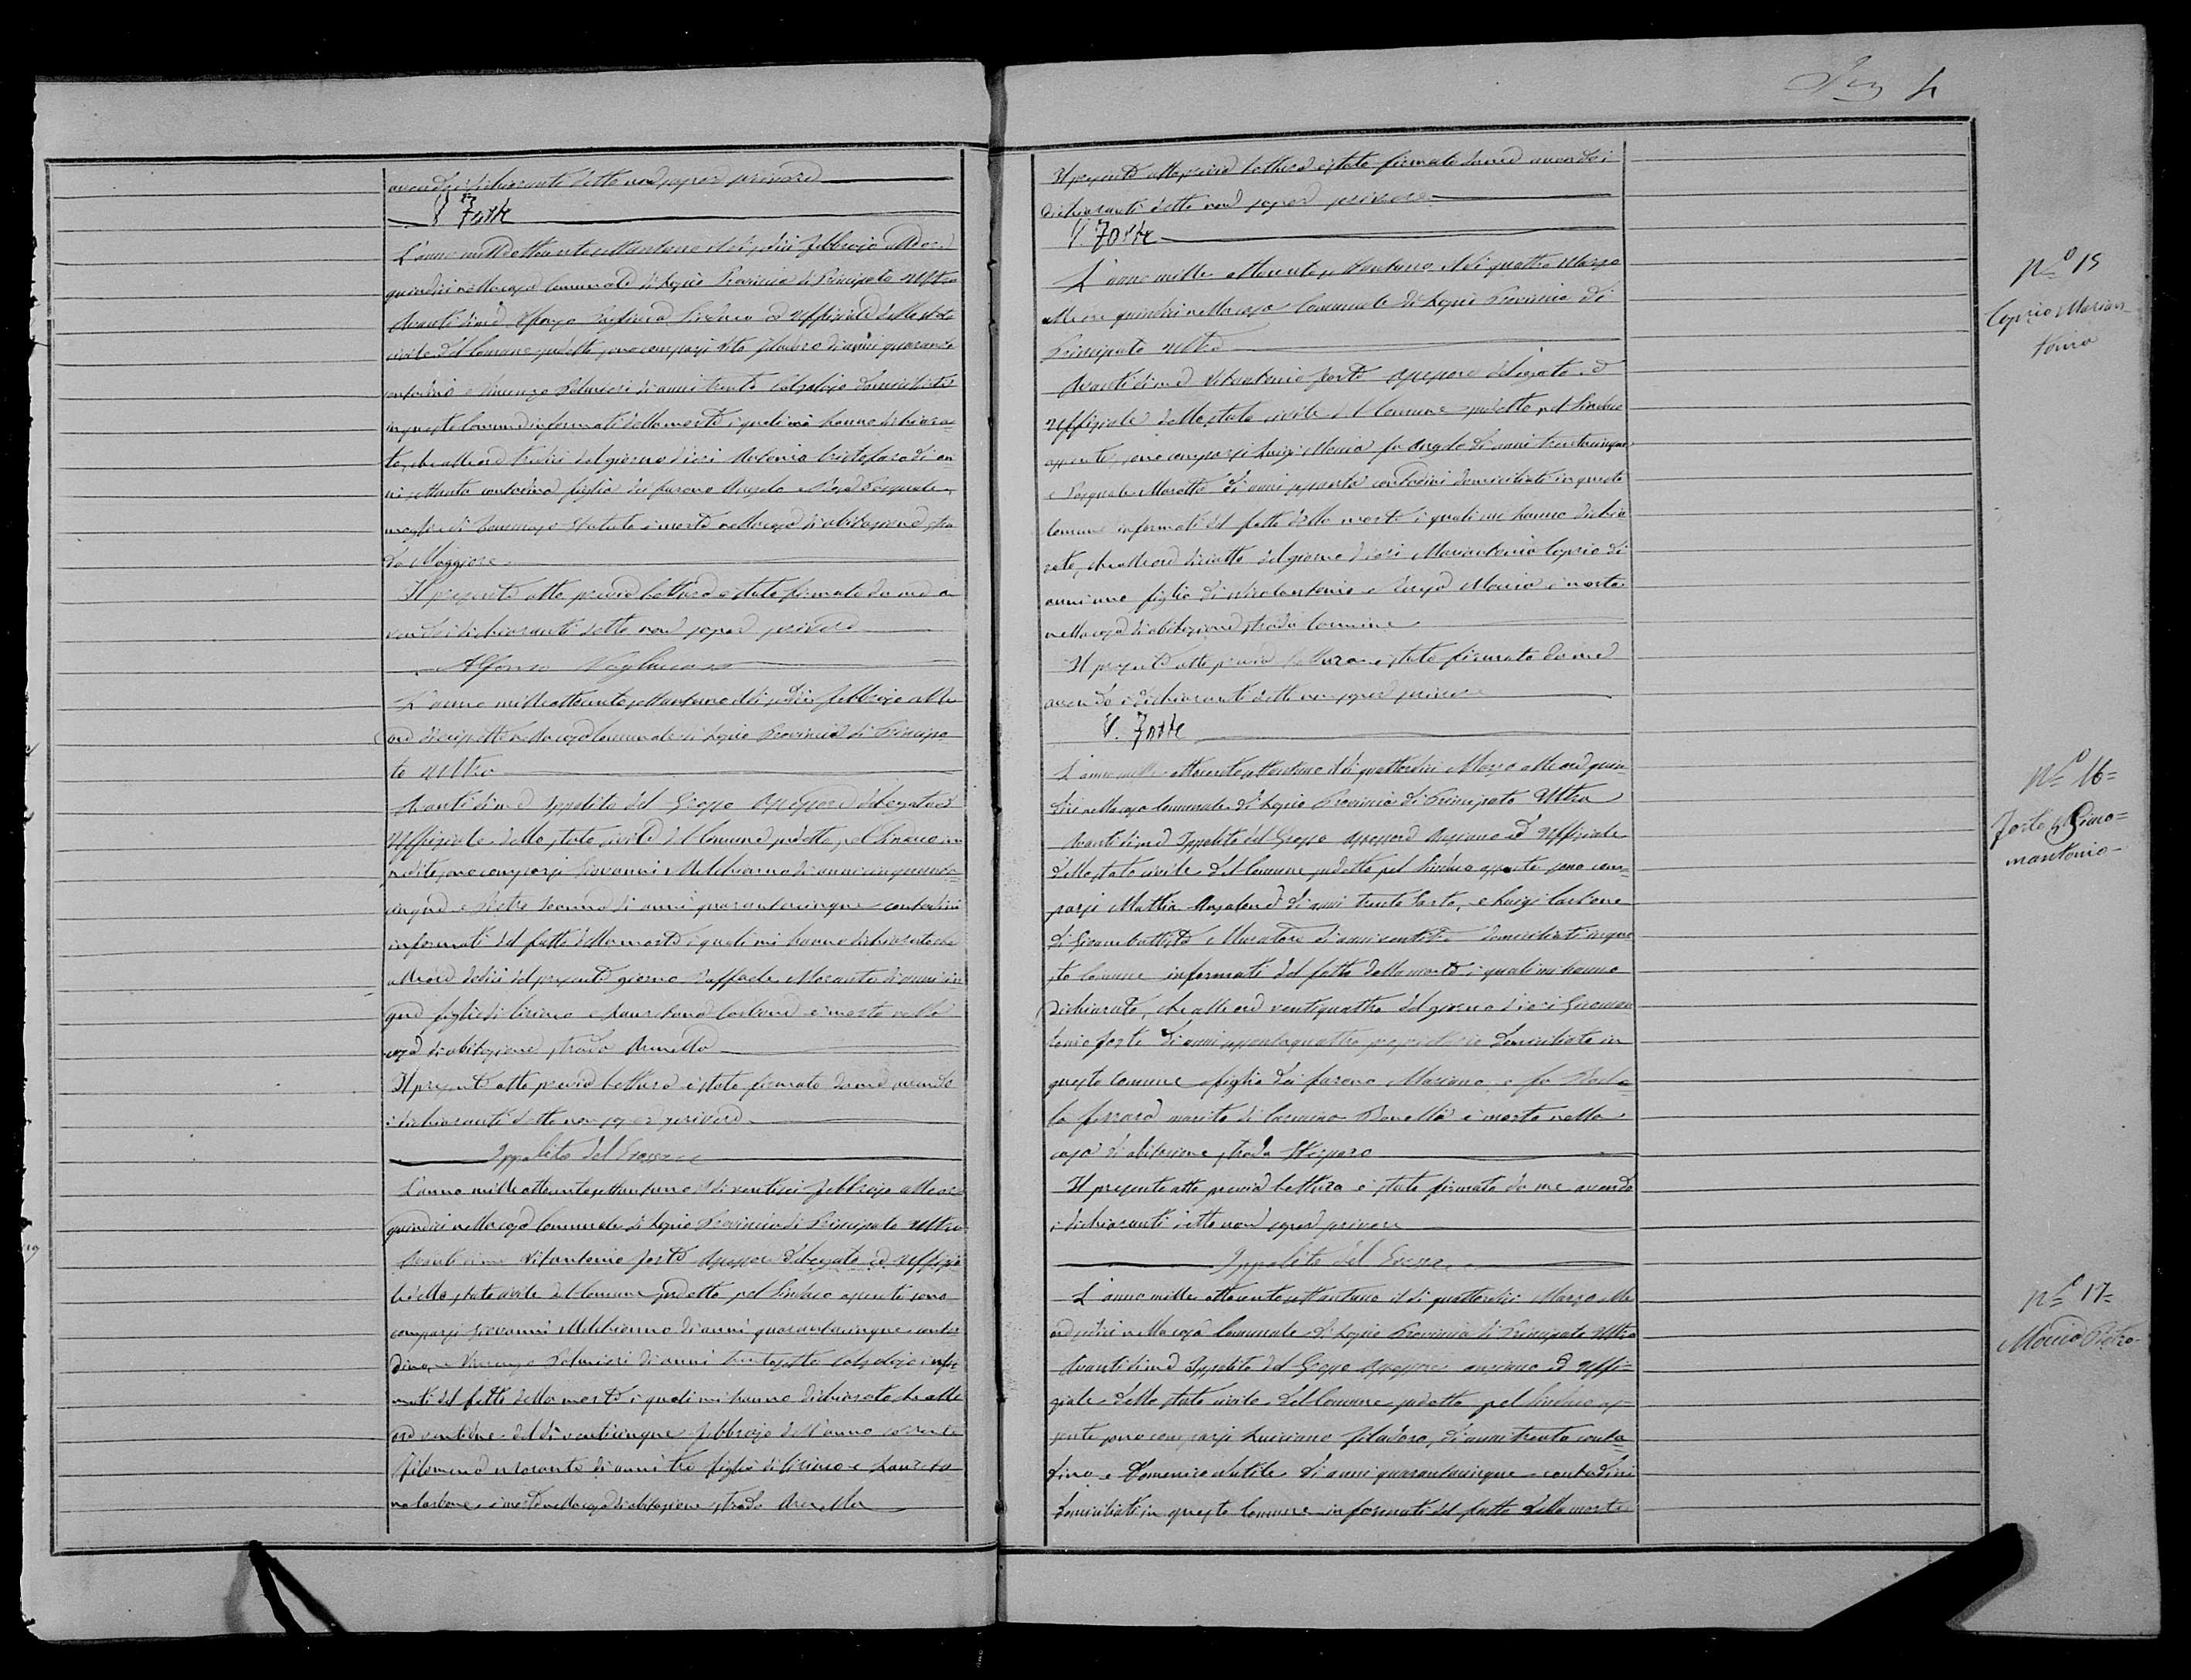 avendo i dichiaranti detto non saper scrivere
V Forte
L'anno mille ottocento settantuno il dì sedici febbrajo alle ore
quindici nella casa Comunale di Lapio Provincia di Principato Ultra
Avanti di me Alfonso Sindaco ed Uffiziale dello stato
civile del Comune sudetto sono comparsi Vito Filadoro di anni quaranta
contadino e Vincenzo Palmieri di anni trenta Calzolajo domiciliati
in questo Comune informati della morte i quali mi hanno dichiara=
to, che alle ore tredici del giorno di ieri Antonia Cristofaro di an
ni settanta contadina figlia dei furono Angelo e Rosa Pasquale,
moglie di Tommaso è morta nella casa di abitazione stra
da Maggiore
Il presente atto previa lettura è stato firmato da me a
vendo i dichiaranti detto non saper scrivere
Alfonso
L'anno mille ottocento settantuno il dì sedici febbrajo alle
ore diciasette nella casa Comunale di Lapio Provincia di Principa
to Ultra
Avanti di me Ippolito del Grosso Assessore delegato ed
Uffiziale dello stato civile del Comune sudetto pel Sindaco im
pedito sono comparsi Giovanni Melchionno di anni cinquanta=
cinque e Pietro di anni quarantacinque contadini
informati del fatto della morte i quali mi hanno dichiarato che
alle ore dodici del presente giorno Raffaele Morante di anni cin
que figlio di Ciriaco e Lauretana Carbone è morto nella
casa di abitazione strada Arenella
Il presente atto previa lettura è stato firmato da me avendo
i dichiaranti detto non saper scrivere
Ippolito del Grosso
L'anno mille ottocento settantuno il dì ventisei febbrajo alle ore
quindici nella casa Comunale di Lapio Provincia di Principato Ultra
Avanti di me Vitantonio Forte Assessore delegato ed Uffizia
le dello stato civile del Comune sudetto pel Sindaco assente sono
comparsi Giovanni Melchionno di anni quarantacinque conta
dino, e Vincenzo Palmieri di anni trentasette calzolajo infor
mati del fatto della morte i quali mi hanno dichiarato, che alle
ore ventidue del dì venticinque febbrajo dell'anno corrente
Filomena Morante di anni tre figlia di Ciriaco e Laureta
na Carbone, è morta nella casa di abitazione strada Arenella
4
Il presente atto previa lettura è stato firmato da me avendo i
dichiaranti detto non saper scrivere
V. Forte
L'anno mille ottocento settantuno il dì quattro Marzo
alle ore quindici nella casa Comunale di Lapio Provincia di
Principato Ultra
Avanti di me Vitantonio Forte Assessore delegato ed
Uffiziale dello stato civile del Comune sudetto pel Sindaco
assente, sono comparsi Luigi Moccia fu Angelo di anni trentacinque
e Pasquale Marotta di anni sessanta contadini domiciliati in questo
Comune informati del fatto della morte i quali mi hanno dichia
rato, che alle ore diciotto del giorno di ieri Mariantonia Caprio di
anni uno figlia di Nicolantonio e Moccia è morta
nella casa di abitazione strada Carmine
Il presente atto previa lettura è stato firmato da me
avendo i dichiaranti detto non saper scrivere
V. Forte
L'anno mille ottocento settantuno il dì quattordici Marzo alle ore quin
dici nella casa Comunale di Lapio Provincia di Principato Ultra
Avanti di me Ippolito del Grosso Assessore Anziano ed Uffiziale
dello stato civile del Comune sudetto pel Sindaco assente sono com=
parsi Mattia di anni trenta Sarto, e Luigi Carbone
di Giambattista Muratore di anni domiciliati in que
sto Comune informati del fatto della morte i quali mi hanno
dichiarato, che alle ore ventiquattro del giorno di ieri Gioman
tonio Forte di anni sessantaquattro proprietario domiciliato in
questo Comune figlio dei furono Mariano e fu
la Ferrara marito di Carmina è morto nella
casa di abitazione strada
Il presente atto previa lettura è stato firmato da me avendo
i dichiaranti detto non saper scrivere
Ippolito del Grosso
L'anno mille ottocento settantuno il dì quattordici Marzo alle
ore sedici nella casa Comunale di Lapio Provincia di Principato Ultra
Avanti di me Ippolito del Grosso Assessore anziano ed Uffi=
ziale dello stato civile del Comune sudetto pel Sindaco as=
sente sono comparsi Luciano Filadoro, di anni trenta conta=
dino e Domenico Nutile di anni quarantacinque contadini
domiciliati in questo Comune informati del fatto della morte
No 15
Caprio Marian
tonia
No 16=
Forte Gimo=
mantonio
No 17=
Moccia Pietro